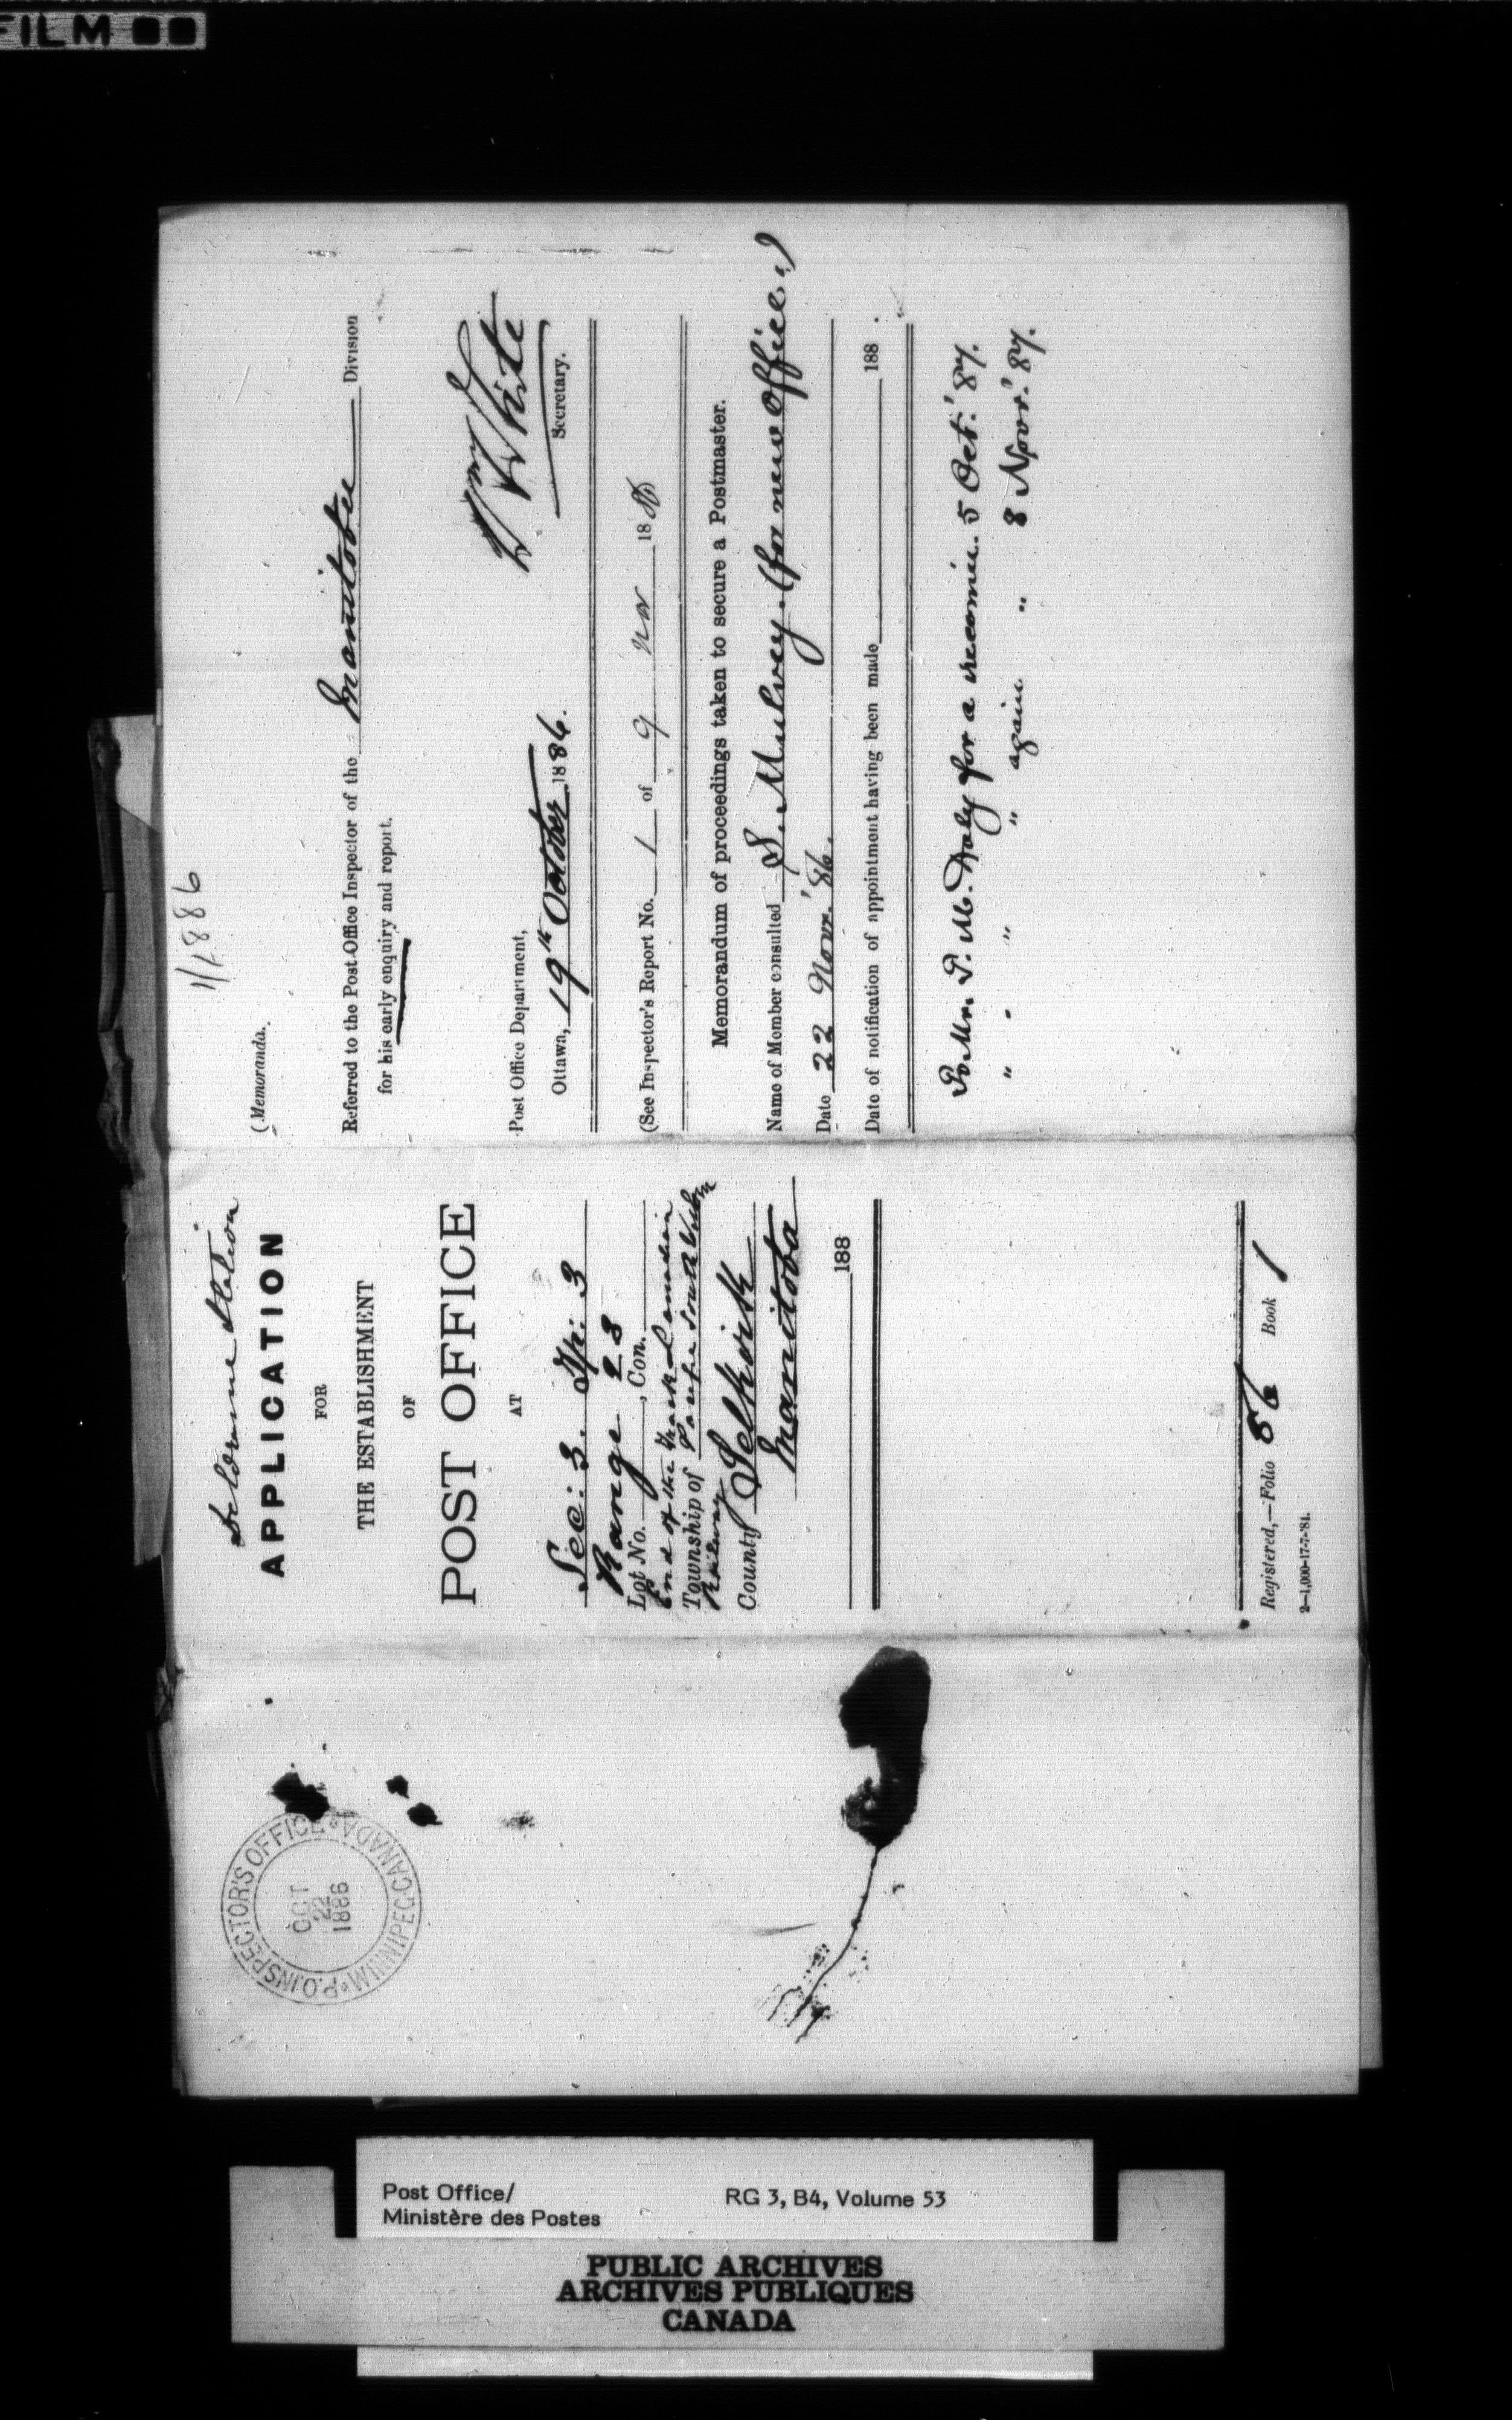 FILM
P.O. INSPECTOR'S OFFICE
WINNIPEG, CANADA
OCT
22
1886
Deloraine Station
APPLICATION
FOR
THE ESTABLISHMENT
OF
POST OFFICE
AT
Sec: 3. Tp: 3
Range 23
Lot No. , Con.
End of the Track Canadian
Township of Pacific South Western
Railway
County Selkirk
Manitoba
188
Registered,—Folio 56 Book 1
2—1,000-17-7-'84.
1/1886
(Memoranda.
Referred to the Post Office Inspector of the Manitoba Division
for his early enquiry and report.
Wm White
Secretary.
Post Office Department,
Ottawa, 19th October 1886.
(See Inspector's Report No. 1 of 9 Nov 1886
Memorandum of proceedings taken to secure a Postmaster.
Name of Member consulted S. Mulvey. (for new office.)
Date 22 Novr. '86.
Date of notification of appointment having been made 188 .
To Mr. T. M. Daly for a recomn. 5 Oct. '87.
" " " " again " 8 Novr. '87.
Post Office/
Ministère des Postes
RG 3, B4, Volume 53
PUBLIC ARCHIVES
ARCHIVES PUBLIQUES
CANADA